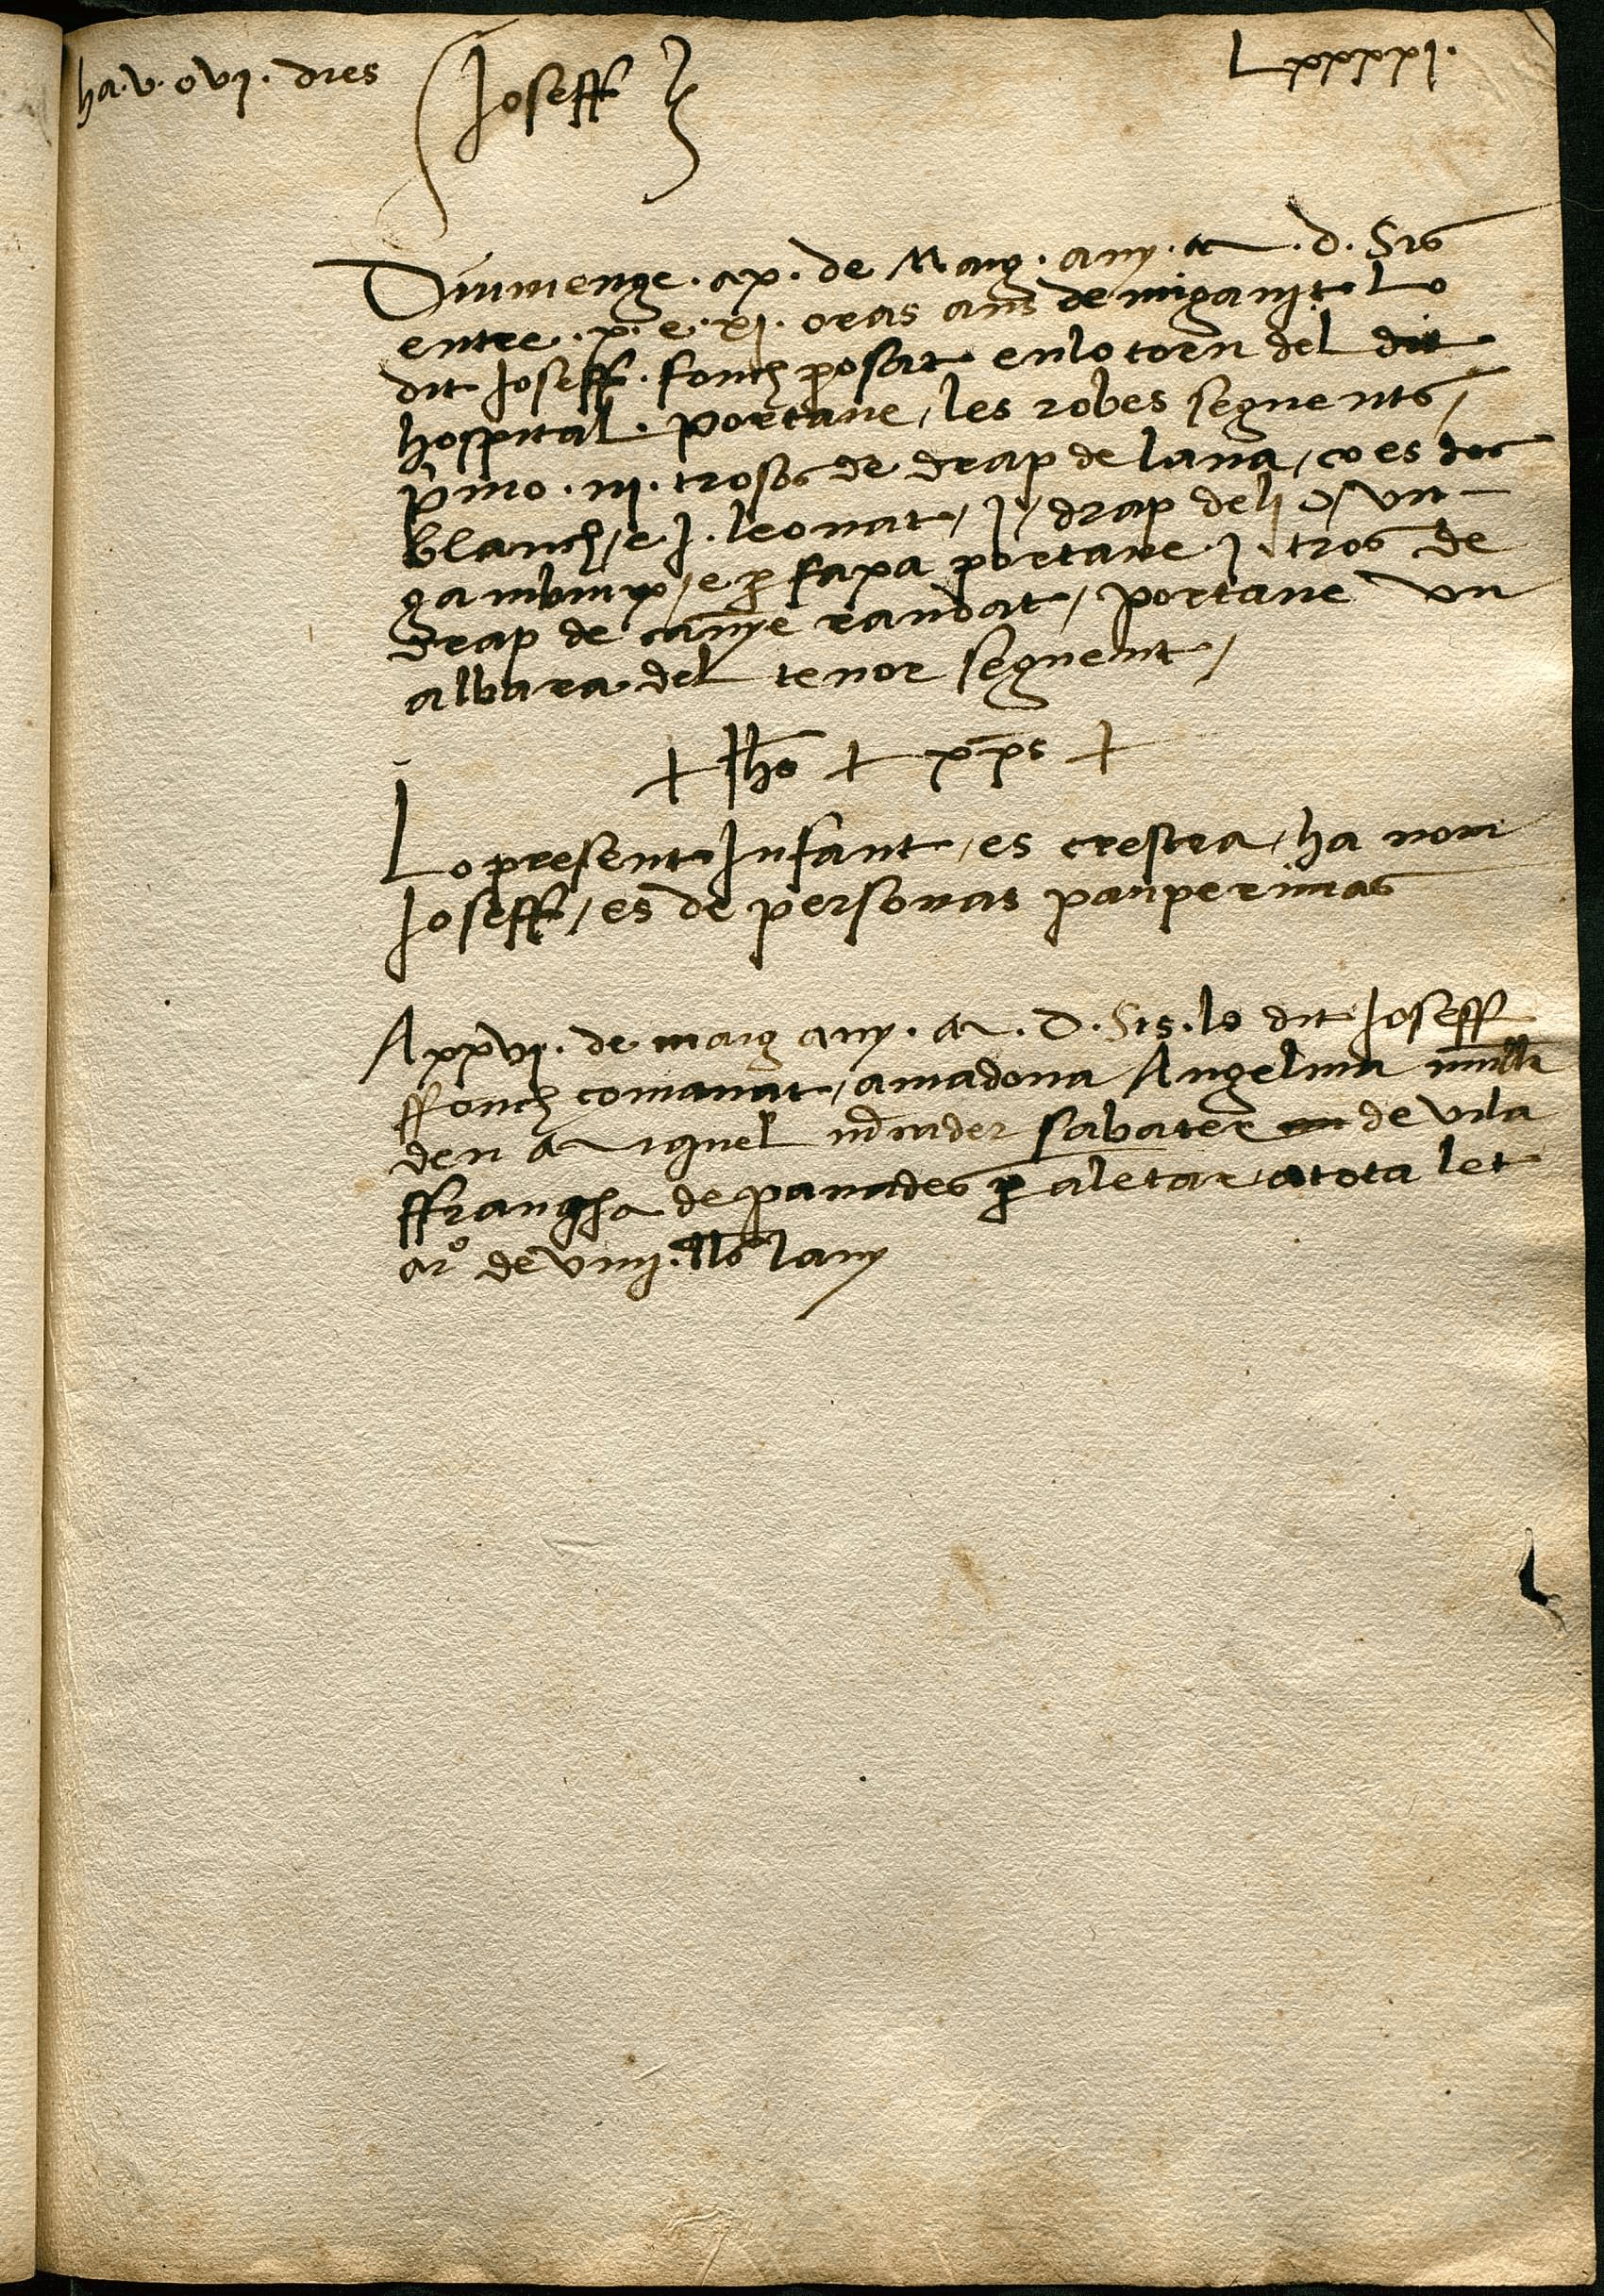 ha .v. o vj. dies
Joseff
Lxxxxj.
Diumenge . a x . de Maig . any . M . d . Sis
entre . x . e . xj . oras ans de miganit Lo
dit Joseff . fonch posat en lo torn del dit
hospital . portave / les robes seguents /
pºmo . iij . trosos de drap de lana / co es dos
blanch / e j . leonat / j / drap de li e / un
gambuix / e p faxa portave j . tros de
drap de canye randat / portave un
albara del tenor seguent /
+ Jhs + xps +
Lo present Infant / es crestia / ha nom
Joseff / es de personas pauperimas
A xxvj . de maig any . M . D . Sis . lo dit Joseff
ffonch comanat / a madona Angelina mull
den Miquel sabater de vila
ffrancha de panades p aletar a tota let
a rº de viiij . ll̅s lany